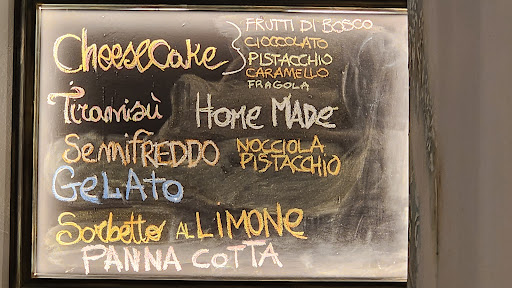 Cheesecake
FRUTTI DI BOSCO
CIOCCOLATO
PISTACCHIO
CARAMELLO
FRAGOLA
Tiramisù HOME MADE
SemiFREDDO NOCCIOLA
PISTACCHIO
GeLATO
Sorbetto AL LIMONE
PANNA COTTA